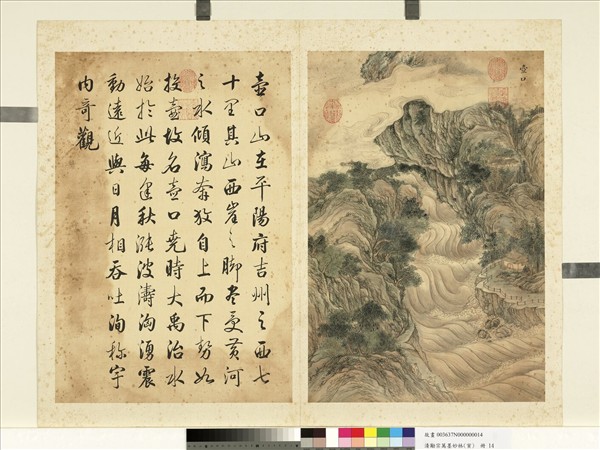 壺口
壺口山在平陽府吉州之西七
十里其山西崖之脚盡受黃河
之水傾瀉奔放自上而下勢如
投壺故名壺口堯時大禹治水
始於此每逢秋漲波濤洶湧震
動遠近與日月相吞吐洵稱宇
內奇觀
故畫 003637N000000014
清勵宗萬墨妙珠林 冊 14